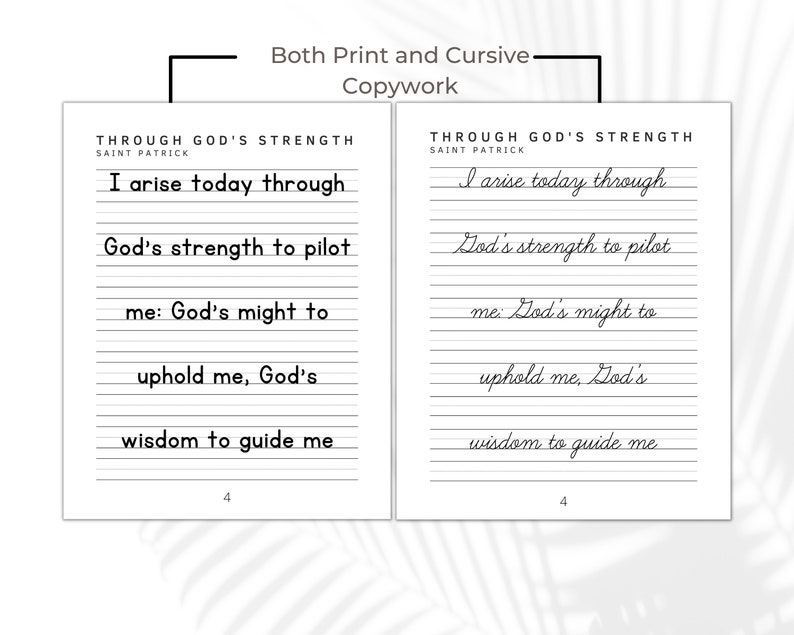 Both Print and Cursive
Copywork
THROUGH GOD'S STRENGTH
SAINT PATRICK
I arise today through
God's strength to pilot
me: God's might to
uphold me, God's
wisdom to guide me
4
THROUGH GOD'S STRENGTH
SAINT PATRICK
I arise today through
God's strength to pilot
me: God's might to
uphold me, God's
wisdom to guide me
4